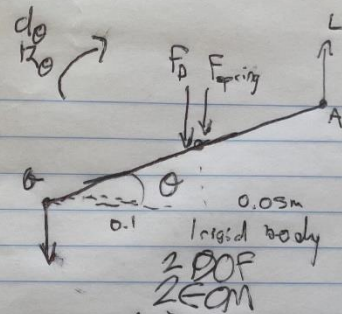 dθ
L
F_D F_spring
A
θ
0.05m
0.1
1 rigid body
2 DOF
2 EOM